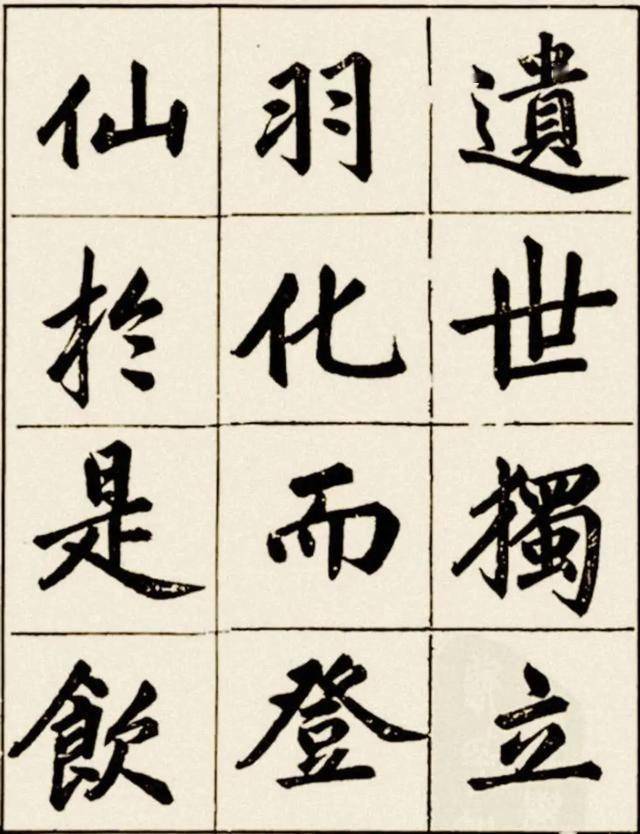 遺世獨立
羽化而登
仙於是飲